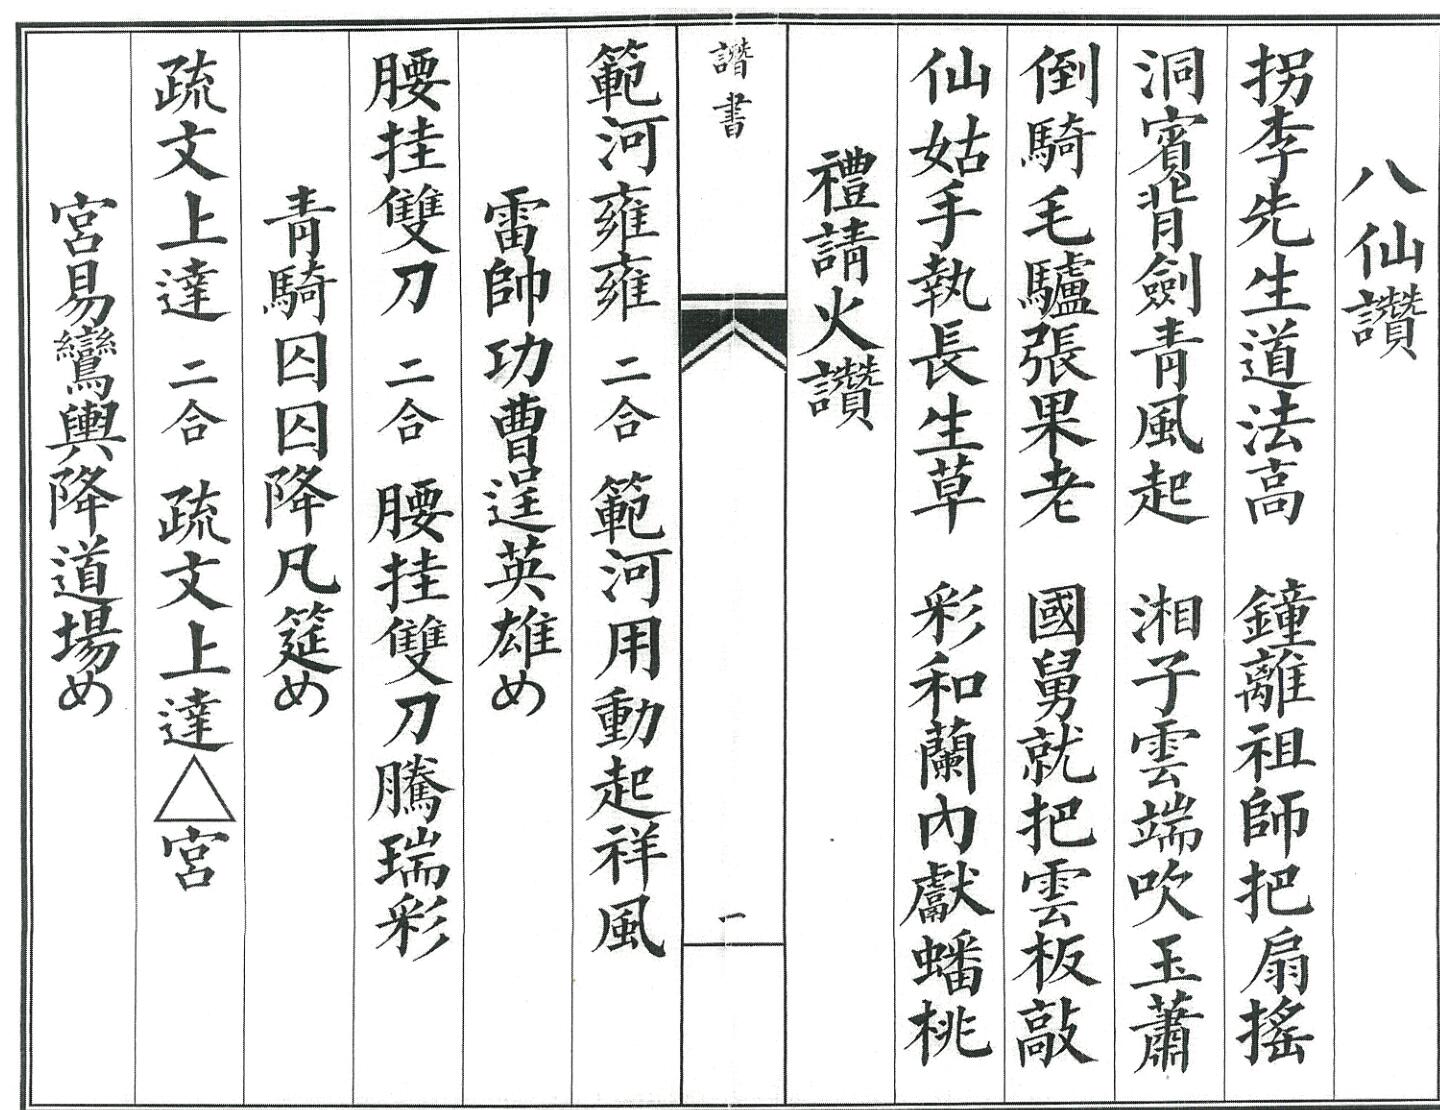 八仙讚
拐李先生道法高　鐘離祖師把扇搖
洞賓背劍青風起　湘子雲端吹玉蕭
倒騎毛驢張果老　國舅就把雲板敲
仙姑手執長生草　彩和蘭內獻蟠桃
禮請火讚
讚書
一
範河雍雍　二合　範河用動起祥風
雷帥功曹逞英雄め
腰挂雙刀　二合　腰挂雙刀騰瑞彩
青騎囚囚降凡筵め
疏文上達　二合　疏文上達△宮
宮易鸞輿降道場め